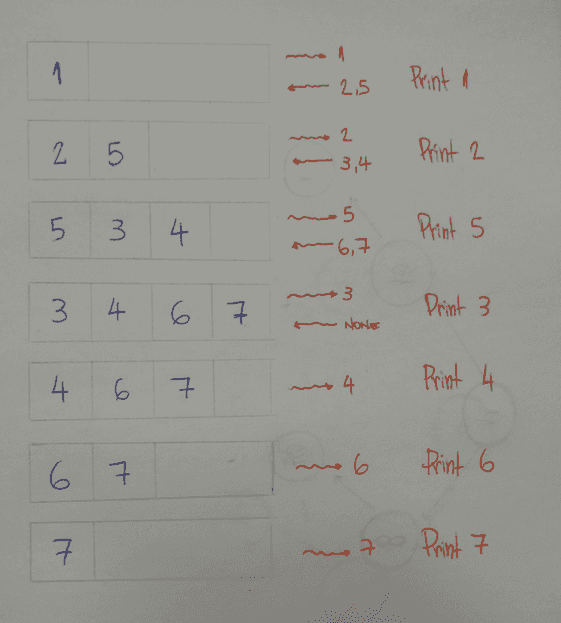 1 → 1
← 2,5 Print 1
2 5 → 2
← 3,4 Print 2
5 3 4 → 5
← 6,7 Print 5
3 4 6 7 → 3
← NONE Print 3
4 6 7 → 4 Print 4
6 7 → 6 Print 6
7 → 7 Print 7